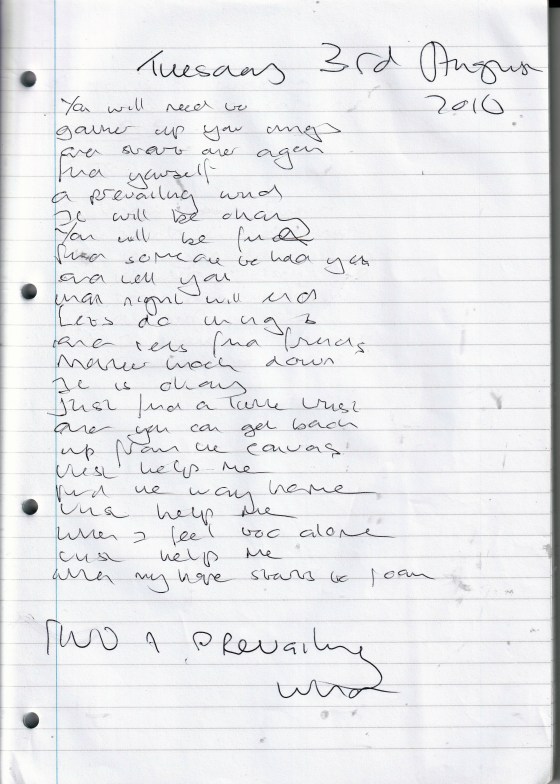 Tuesday 3rd August
2010
You will need to
gather up your things
and start over again
find yourself
a prevailing wind
It will be okay
You will be fine
find someone to hold you
and tell you
that night will end
Lets do things
and lets find friends
knock down
It is okay
Just find a little trust
and you can get back
up from the canvas
just help me
find the way home
just help me
when I feel too alone
just help me
when my hope starts to roam
FIND A PREVAILING
wind